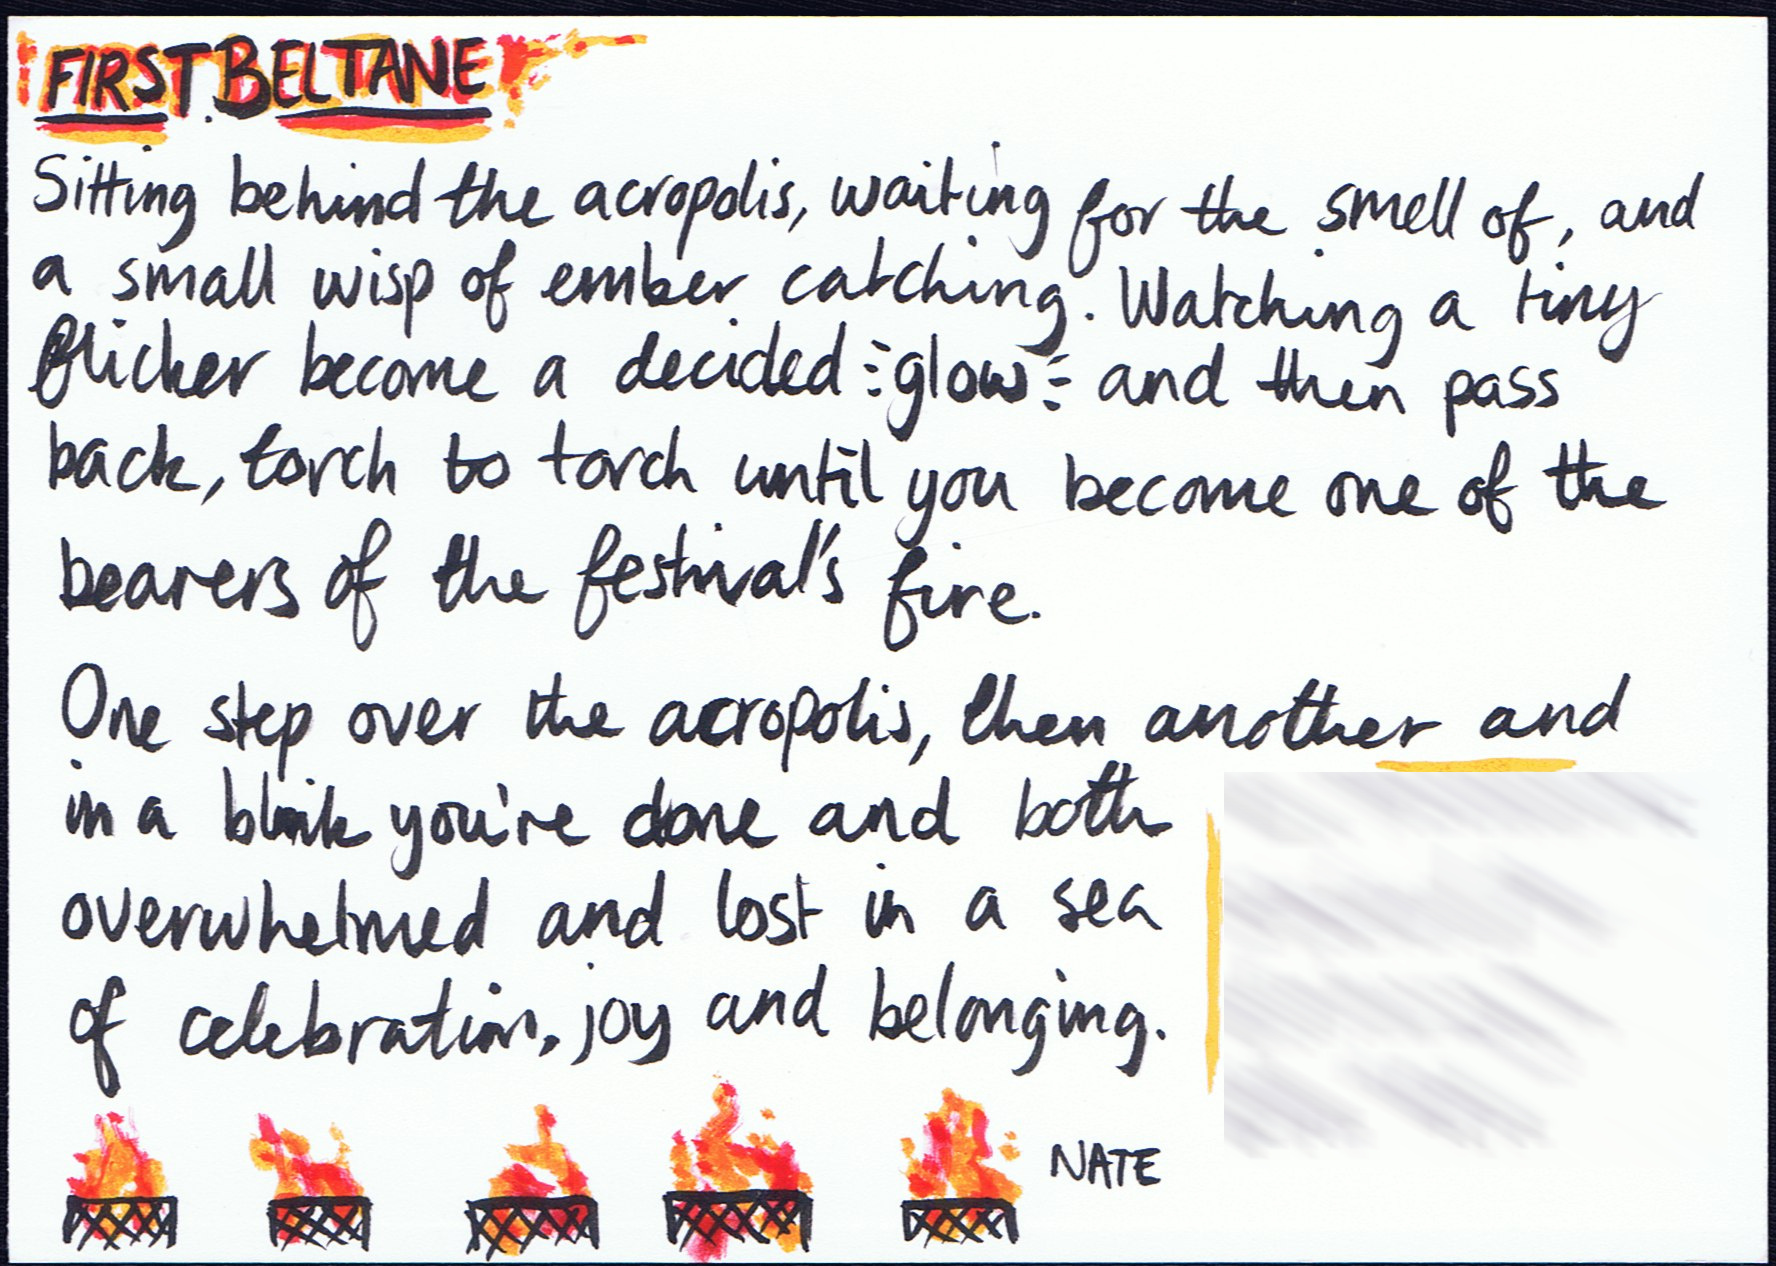 FIRST BELTANE
Sitting behind the acropolis, waiting for the smell of, and
a small wisp of ember catching. Watching a tiny
flicker become a decided glow and then pass
back, torch to torch until you become one of the
bearers of the festival's fire.
One step over the acropolis, then another and
in a blink you're done and both
overwhelmed and lost in a sea
of celebration, joy and belonging.
NATE